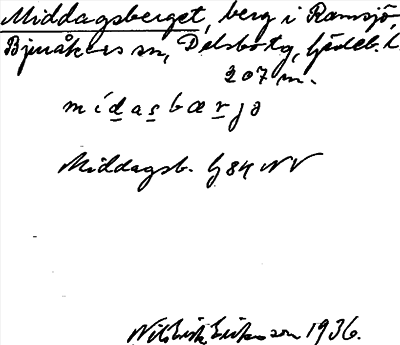 Middagsberget, berg i Ramsjö,
Bjuråkers sn, Delsbo tg,
207 m.
mídasbærjə
Middagsb. Lj 84 NV
Nils Erik Eriksson 1936.